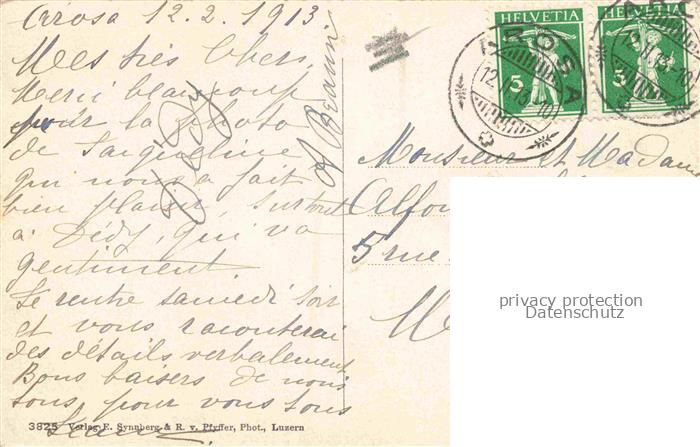 Arosa 12.2.1913
Mes très chers,
Merci beaucoup
pour la photo
de
qui nous a fait
bien plaisir, surtout
à Dédy, qui va
gentiment
Je rentre samedi soir
et vous raconterai
des détails verbalement
Bons baisers de nous
tous pour vous tous
Dédy
3825 Verlag E. Synnberg & R. v. Pfyffer, Phot., Luzern
HELVETIA
5
HELVETIA
5
AROSA
12.II.13.-10
Monsieur et Madame
5 rue
privacy protection
Datenschutz